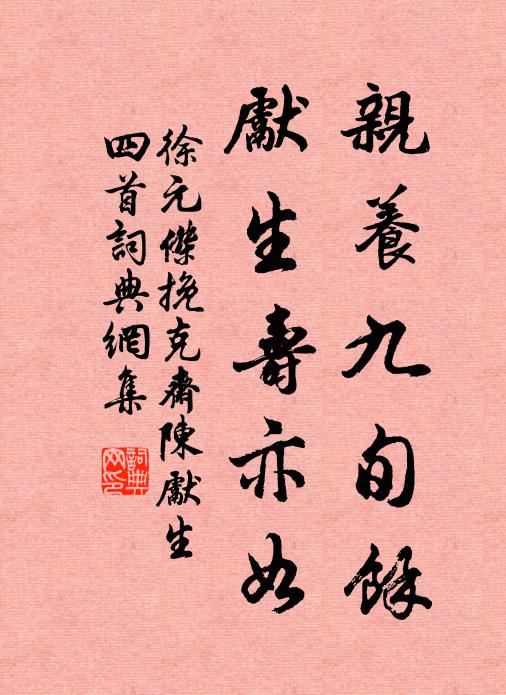 親養九旬餘
獻生壽亦如
徐元傑挽克齋陳獻生
四首詞典網集
詞典网印